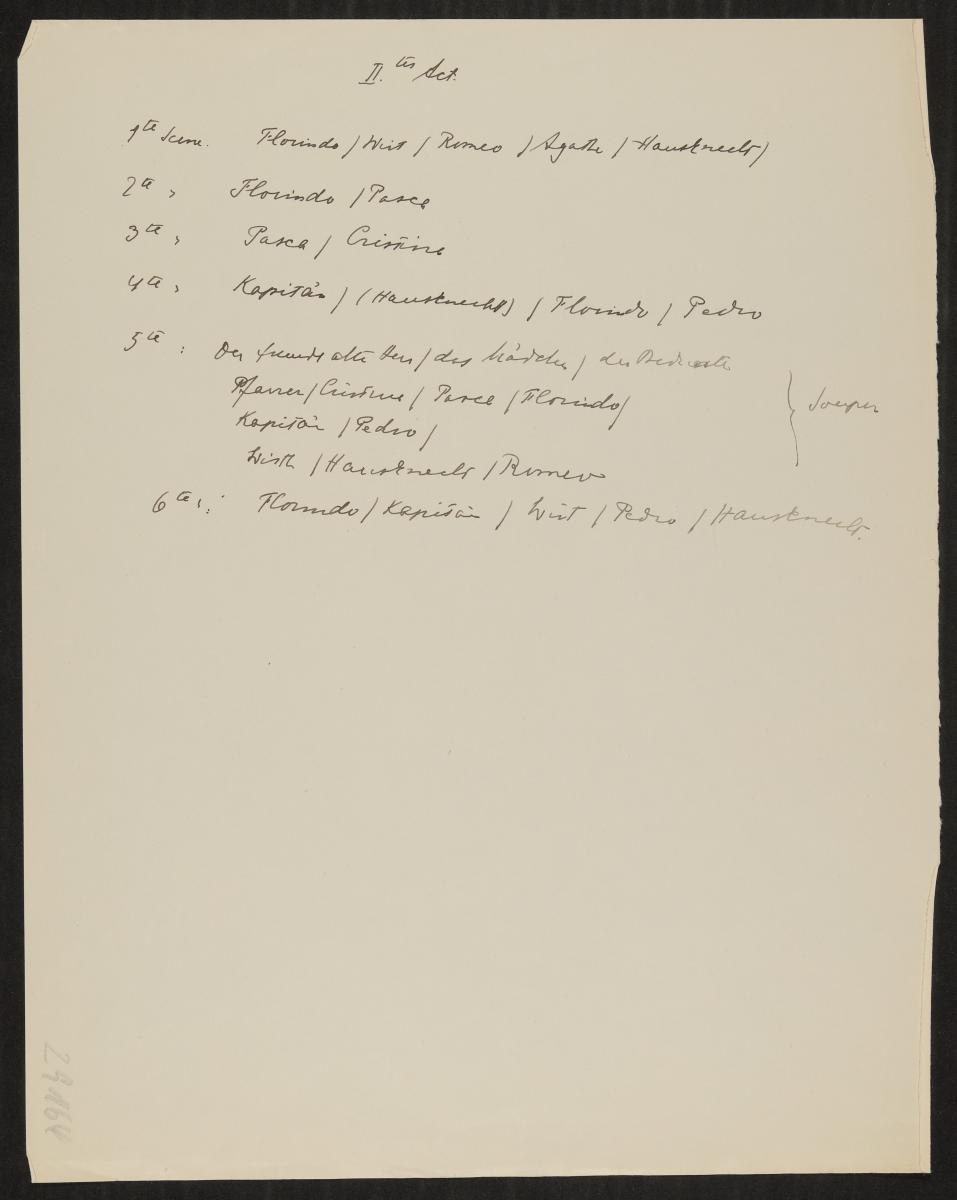 II.tes Act.
1te Scene. Florindo / Wirt / Romeo / Agathe / Hausknecht /
2te " Florindo / Pasca
3te " Pasca / Cristine
4te " Kapitän / (Hausknecht) / Florindo / Pedro
5te : Der fremde alte Herr / das Mädchen / der Bediente
Pfarrer / Cristine / Pasca / Florindo /
Kapitän / Pedro /
Wirth / Hausknecht / Romeo
6te " : Florindo / Kapitän / Wirt / Pedro / Hausknecht.